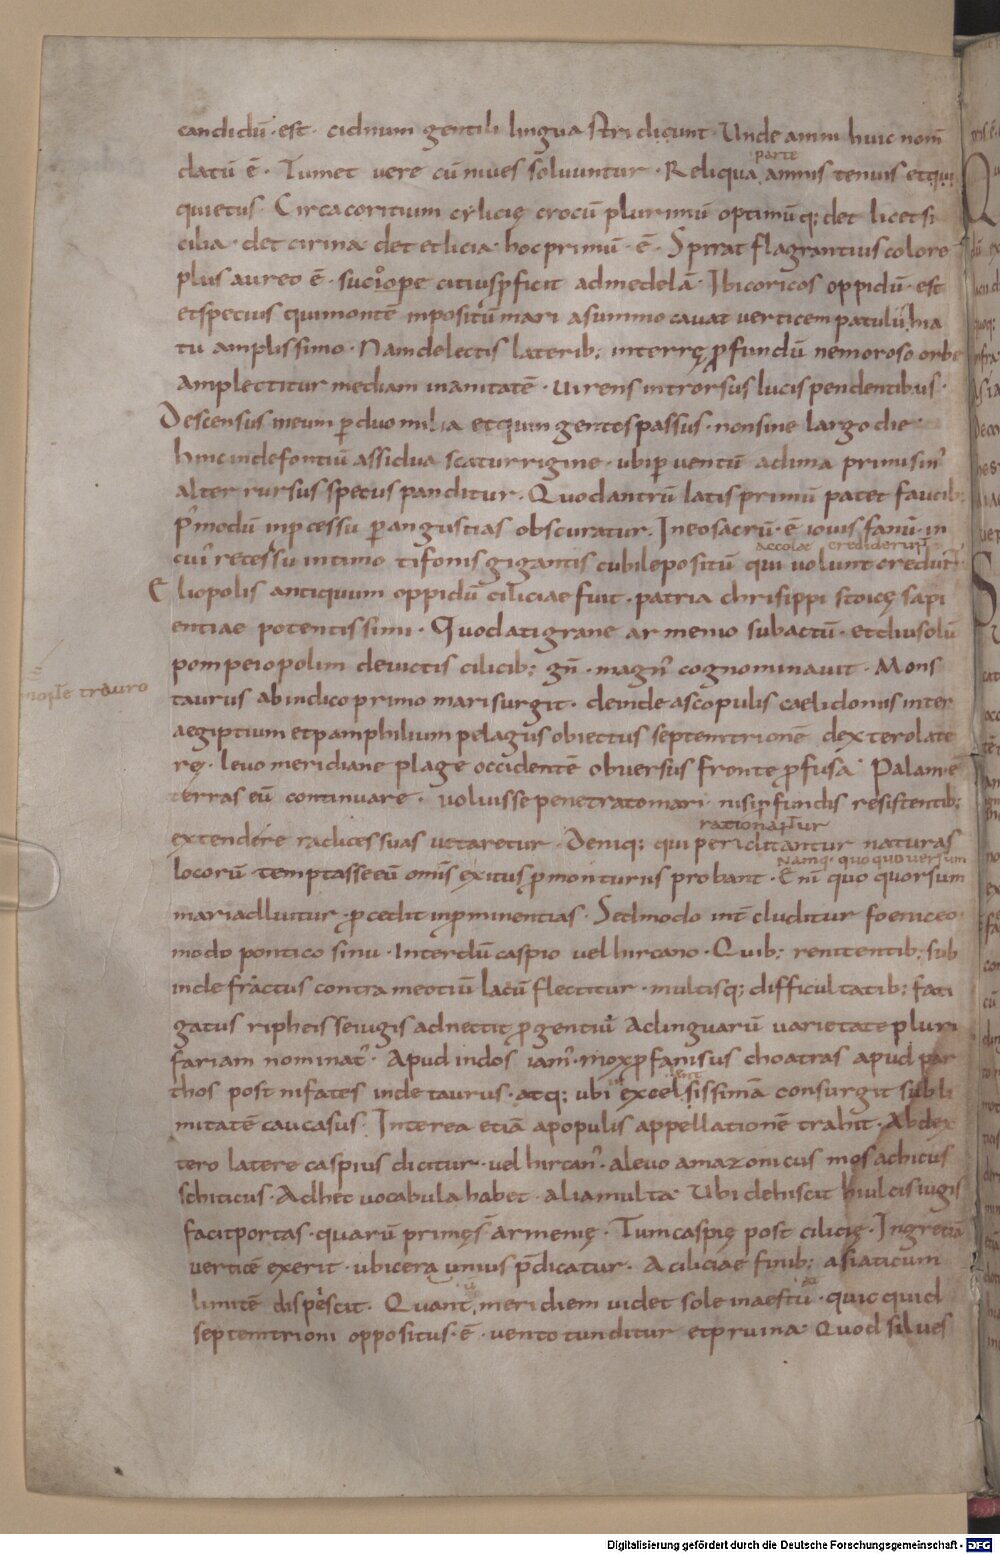 candidū · est · cidnum gentili lingua stri dicunt · Unde amni huic nom̄
datū ē · Tumet vere cū nives solvuntur · Reliqua amnis tenuis et qui
parte
quietus · Circa coritium ciliciȩ crocū plurimū optimūq; det licet si
cilia · det cirina det et licia · hoc primū · ē · Spirat flagrantius colore
plus aureo ē · succi ope citius ꝓficit ad medelā · Ibi coricos oppidū · est
et specus qui montē inpositū mari a summo cavat verticem patulū hia
tu amplissimo · Nam delectis laterib; in terrȩ ꝓfundū nemoroso orbe
amplectitur mediam inanitatē · virens introrsus lucis pendentibus ·
Descensus in eum ꝑ duo milia et quingentos passus · non sine largo die
hinc inde fontiū assidua scaturrigine · ubi ꝑventū ad ima primi sin'
alter rursus specus panditur · Quod antrū latis primū patet faucib;
p'modū in pcessu ꝑ angustias obscuratur · In eo sacrū · ē iovis fanū · in
accolae crediderun̄
cui' recessu intimo tifonis gigantis cubile positū qui volunt credun̄t
Eliopolis antiquum oppidū ciliciae fuit · patria chrisippi stoicȩ sapi
entiae potentissimi · Quod a tigrane armenio subactū · et diu solū
pompeiopolim devictis cilicib; gn̄ · magn' cognominavit · Mons
taurus ab indico primo mari surgit · deinde a scopulis caelidoniis inter
aegiptium et pamphilium pelagus obiectus septemtrionē dextero late
rȩ · levo meridiane plage occidentē obversus fronte ꝓfusa · Palam ē
terras eū continuare · voluisse penetrato mari nisi ꝓfundis resistentib;
extendere radices suas vetaretur · Deniq; qui periditantur naturas
locorū temptasse eū om̄is exitus ꝓmonturiis probant · Eni quo quorsum
Namq · quoquoversum
mari adluitur · ꝓcedit in ꝓminentias · Sed modo int̄cluditur foeniceo
modo pontico sinu · Interdū caspio vel hircano · Quib; renitentib; sub
inde fractus contra meotiū lacū flectitur · multisq; difficultatib; fati
gatus ripheis se iugis adnectit ꝓ gentiū Ac linguarū varietate pluri
fariam nominat' · Apud indos iam' · mox ꝓfanisus choatras apud par
thos post nifates inde taurus · atq; ubi excelsissimā consurgit subli
mitatē caucasus · Interea etiā a populis appellationē trahit · A bdex
tero latere caspius dicitur · vel hircan' · a levo amazonicus mosachicus
schiticus · Ad het vocabula habet · alia multa · Ubi dehiscit hiulcis iugis
facit portas · quarū primȩ s̄ armeniȩ · Tum caspiȩ post ciliciȩ · In gretiā
verticē exerit · ubi cerauniis p̄dicatur · A ciliciae finib; asiaticum
limitē dispescit · Quant meridiem videt sole inaestū · quicquid
septemtrioni oppositus · ē · vento tunditur et pruina · Quod silves